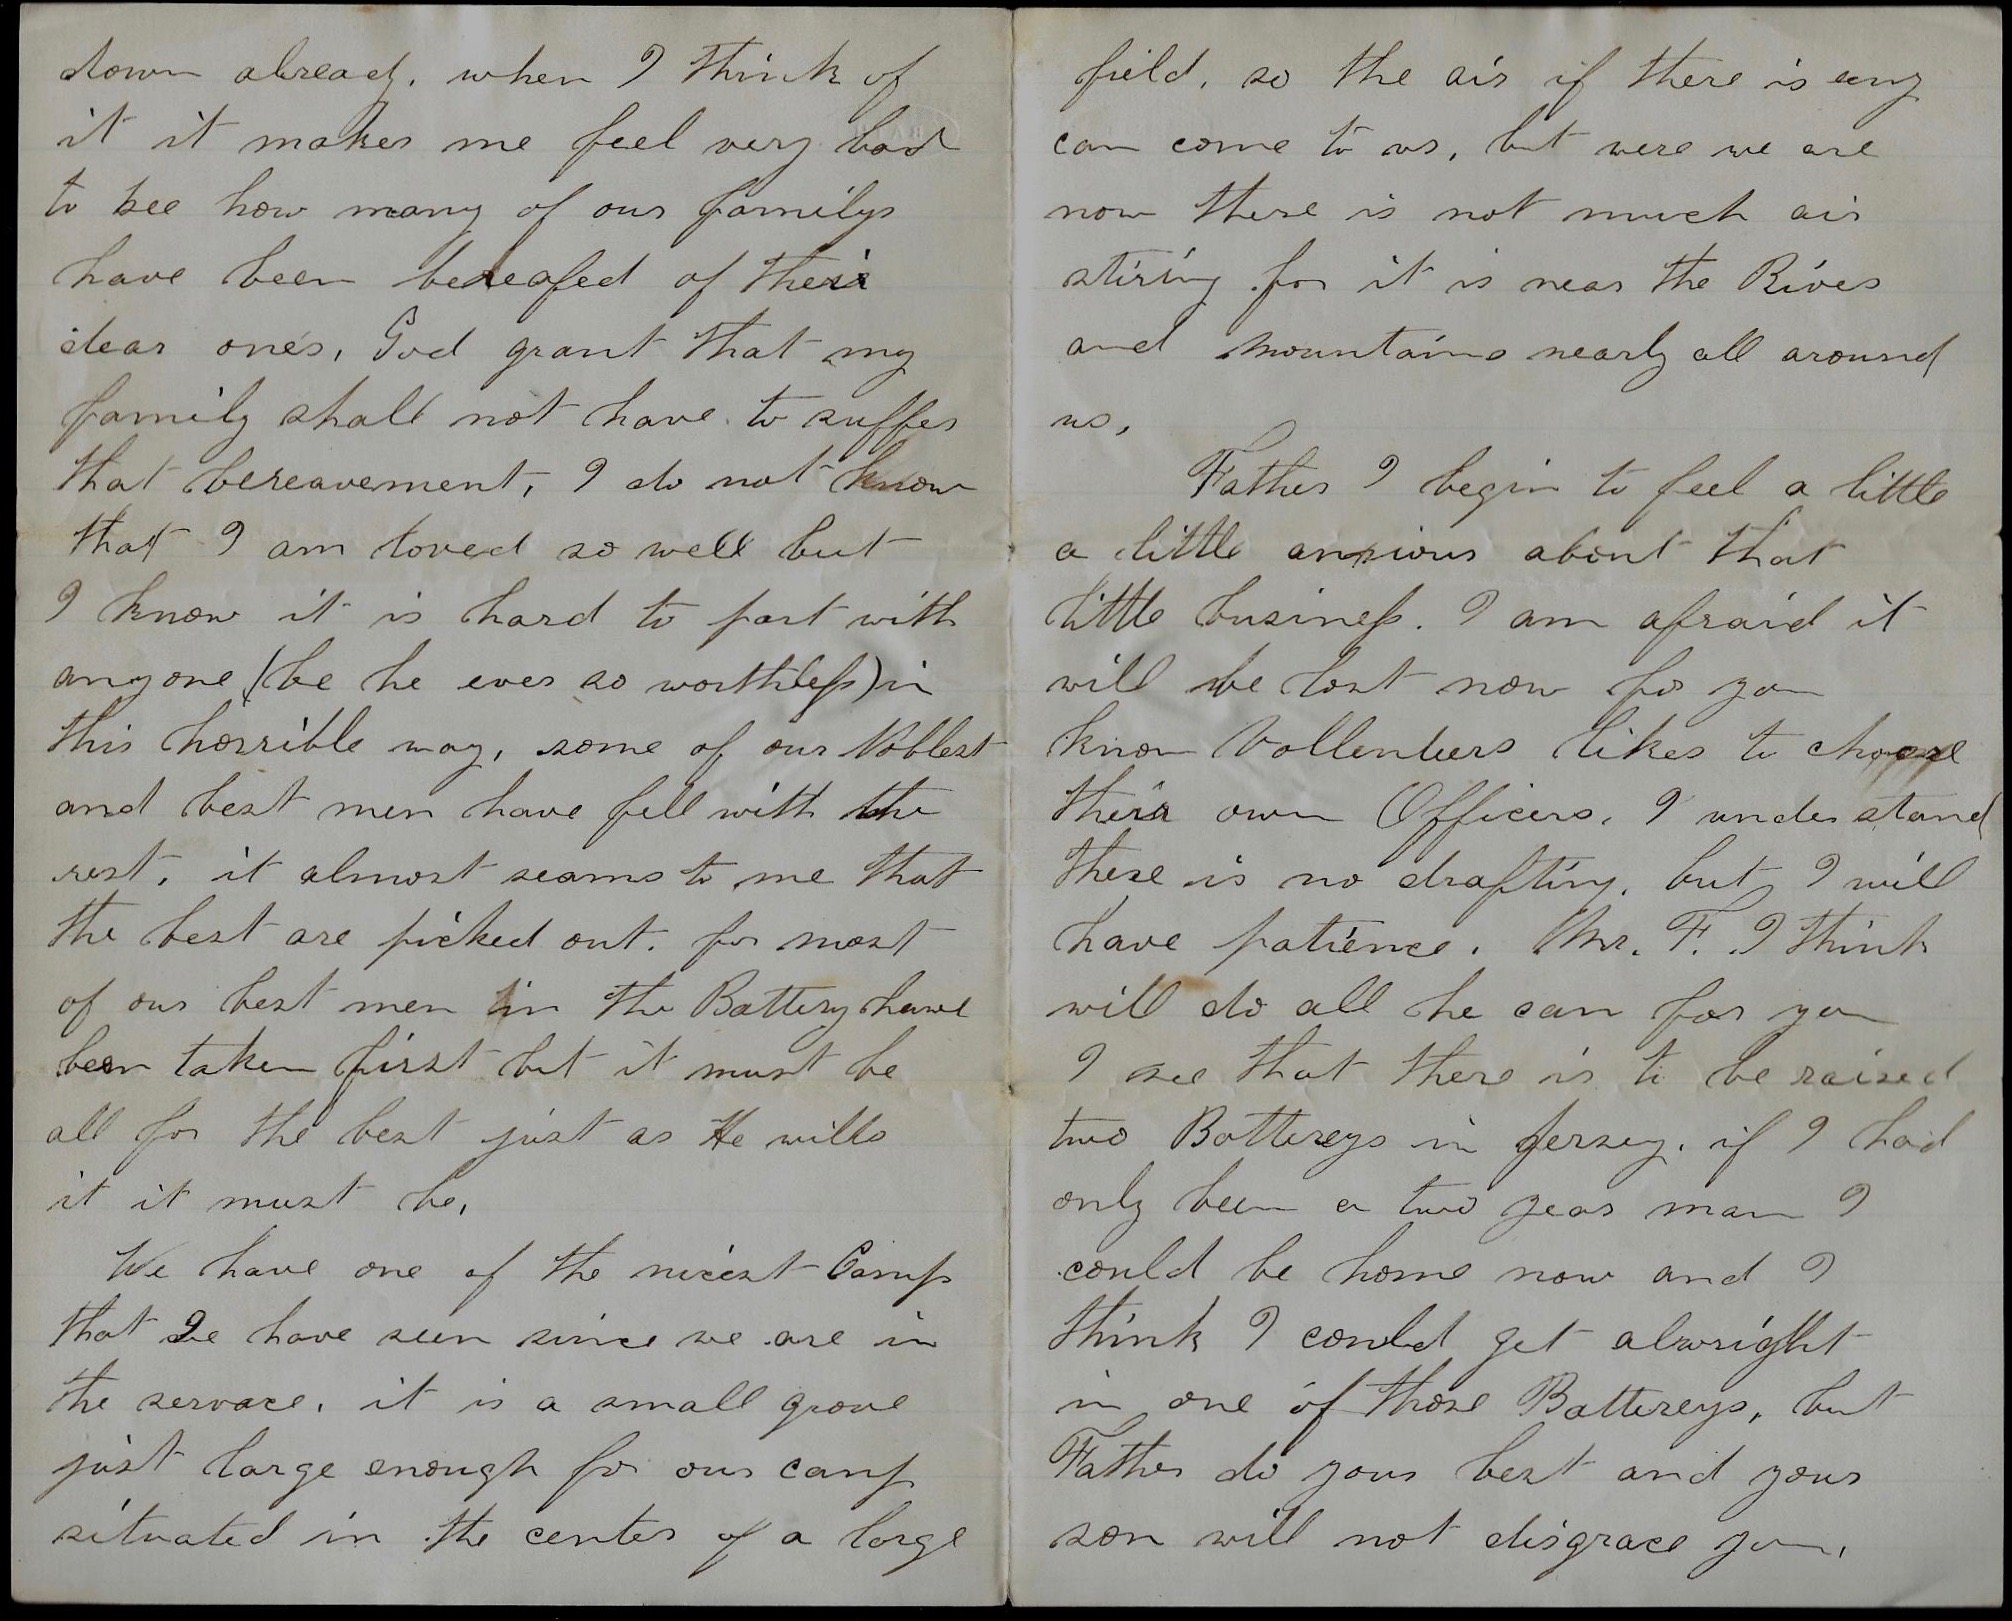 down already, when I think of
it it makes me feel very bad
to see how many of our familys
have been bereafed of their
dear ones, God grant that my
family shall not have to suffer
that bereavement, I do not know
that I am loved so well but
I know it is hard to part with
anyone (be he ever so worthless) in
this horrible way, some of our Noblest
and best men have fell with the
rest, it almost seams to me that
the best are picked out. for most
of our best men in the Battery have
been taken first but it must be
all for the best just as He wills
it it must be,
We have one of the nicest Camp
that we have seen since we are in
the servace, it is a small grove
just large enough for our camp
situated in the center of a large
field, so the air if there is eny
can come to us, but were we are
now there is not much air
stiring for it is near the River
and mountains nearly all around
us,
Father I begin to feel a little
a little anxious about that
little business. I am afraid it
will be lost now for you
know Vollenteers likes to choose
their own Officers, I understand
there is no drafting, but I will
have patience, Mr. F. I think
will do all he can for you
I see that there is to be raised
two Battereys in Jersey, if I had
only been a two year man I
could be home now and I
think I could get alwright
in one of those Battereys, but
Father do your best and your
son will not disgrace you,